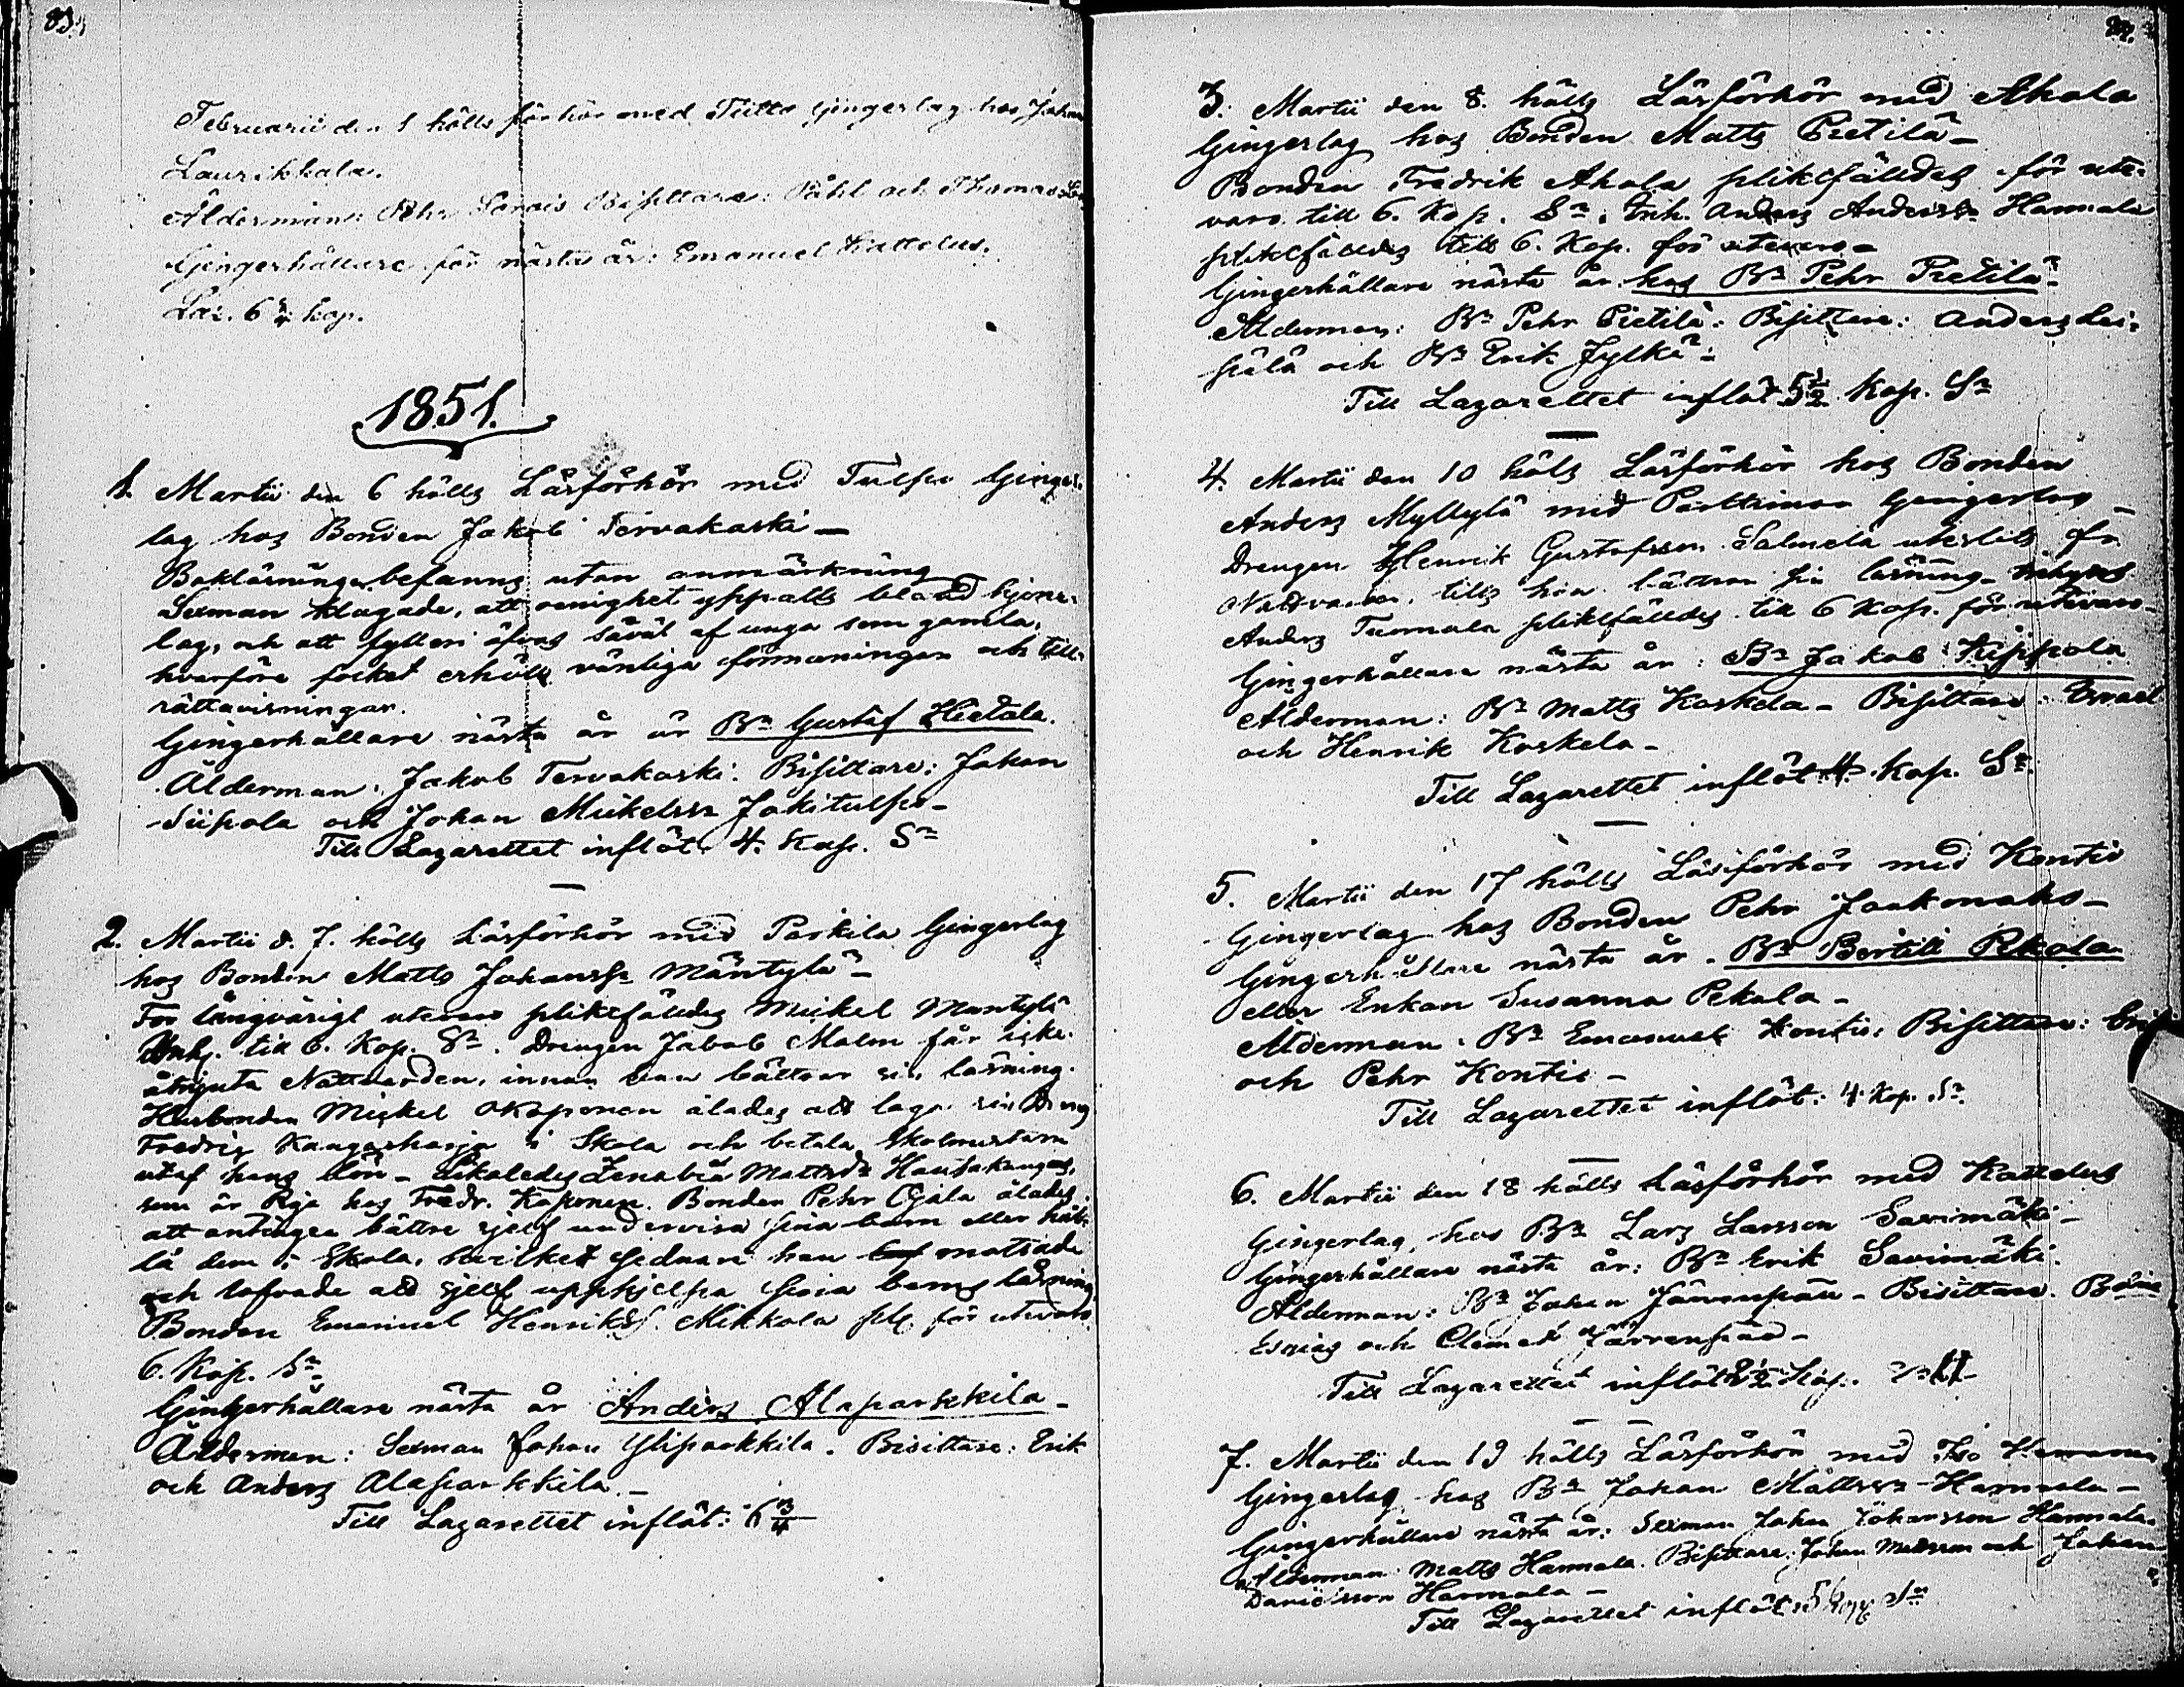 83.
Februarii den 1 hölls förhör med Tiitto Gingerlag hos Johan
Laurikkala.
Ålderman: Pehr Sarais Bisittare: Påhl och Thomas
Gingerhållare för nästa år: Emanuel Kattelus.
Laz. 6 3/4 kop.
1851.
1. Martii den 6 hölls Läsförhör med Tulpo Ginger-
lag hos Bonden Jakob Tervakoski —
Bokläsningen befanns utan anmärkning
Sexman klagade, att oenighet yppatts bland hjone-
lag, och att fylleri öfvas såväl af unga som gamla,
hvarföre folket erhöll vänliga förmaningar och till-
rättavisningar.
Gingerhållare nästa år är Bn Gustaf Hietala.
Ålderman: Jakob Tervakoski. Bisittare: Johan
Siipola och Johan Mickelssn Jokitulpo –
Till Lazarettet inflöt. 4. Kop. Sr
2. Martii d. 7. hölls Läsförhör med Parkila Gingerlag
hos Bonden Matts Johanss. Mäntylä –
För långvarigt utevaro pliktfälldes Mickel Mäntylä
Inh. till 6. Kop. Sr. Drengen Jakob Malm får icke
åtnjuta Nattvarden, innan han bättrar sin läsning.
Husbonden Mickel Kaponen ålades att laga sin Dreng
Fredrik Kangasharju i Skola och betala Skolmästaren
utaf hans lön – Likaledes Zenobia Mattsdr Hautakangas,
som är Piga hos Fredr. Kaponen. Bonden Pehr Ojala ålades
att antingen bättre sjelf undervisa sina barn eller hål-
la dem i Skola, hvilket sednare han motsade
och lofvade att sjelf upphjelpa sina barns läsning
Bonden Emanuel Henrikss. Mikkola pl. för utevaro
6. Kop. Sr
Gingerhållare nästa år Anders Alaparkkila –
Ålderman: Sexman Johan Yliparkkila. Bisittare: Erik
och Anders Alaparkkila –
Till Lazarettet inflöt: 6 3/4
3. Martii den 8. hölls Läsförhör med Ahola
Gingerlag hos Bonden Matts Pietilä –
Bonden Fredrik Ahola pliktfälldes för ute-
varo till 6. Kop. Sr. Inh. Anders Anderss. Hannula
pliktfälldes till 6. Kop. för utevaro –
Gingerhållare nästa år hos Bn Pehr Pietilä –
Ålderman: Bn Pehr Pietilä: Bisittare: Anders Lei-
pälä och Bn Erik Jylkä –
Till Lazarettet inflöt 5 1/2 Kop. Sr
4. Martii den 10 hölls Läsförhör hos Bonden
Anders Myllylä med Gingerlag –
Drengen Henrik Gustafsson Salmela uteslöts fr.
Nattvarden, tills han bättrar sin läsning.
Anders Tuomala pliktfälldes till 6 Kop. för utevaro –
Gingerhållare nästa år: Bn Jakob Kippola
Ålderman: Bn Matts Koskela – Bisittare: Israel
och Henrik Koskela –
Till Lazarettet inflöt 4. Kop. Sr.
5. Martii den 17 hölls Läsförhör med Kontio
Gingerlag hos Bonden Pehr Jaakonaho –
Gingerhållare nästa år. Bn Bertill Pekola
eller Enkan Susanna Pekola –
Ålderman. Bn Emanuel Kontio: Bisittare: Erik
och Pehr Kontio –
Till Lazarettet inflöt: 4. Kop. Sr.
6. Martii den 18 hölls Läsförhör med Kattelus
Gingerlag, hos Bn Lars Larsson Savimäki –
Gingerhållare nästa år: Bn Erik Savimäki.
Ålderman: Bn Johan Järvenpää – Bisittare.
Esaias och Clemet Järvenpää –
Till Lazarettet inflöt 2 1/2 Kop.
7. Martii den 19 hölls Läsförhör med Iso
Gingerlag hos Bn Johan Mattssn Hannula –
Gingerhållare nästa år: Sexman Johan Johansson Hannula.
Ålderman Matts Hannula. Bisittare: Johan Mattsson och Johan
Danielsson Hannula –
Till Lazarettet inflöt: 5 Kop. Sr